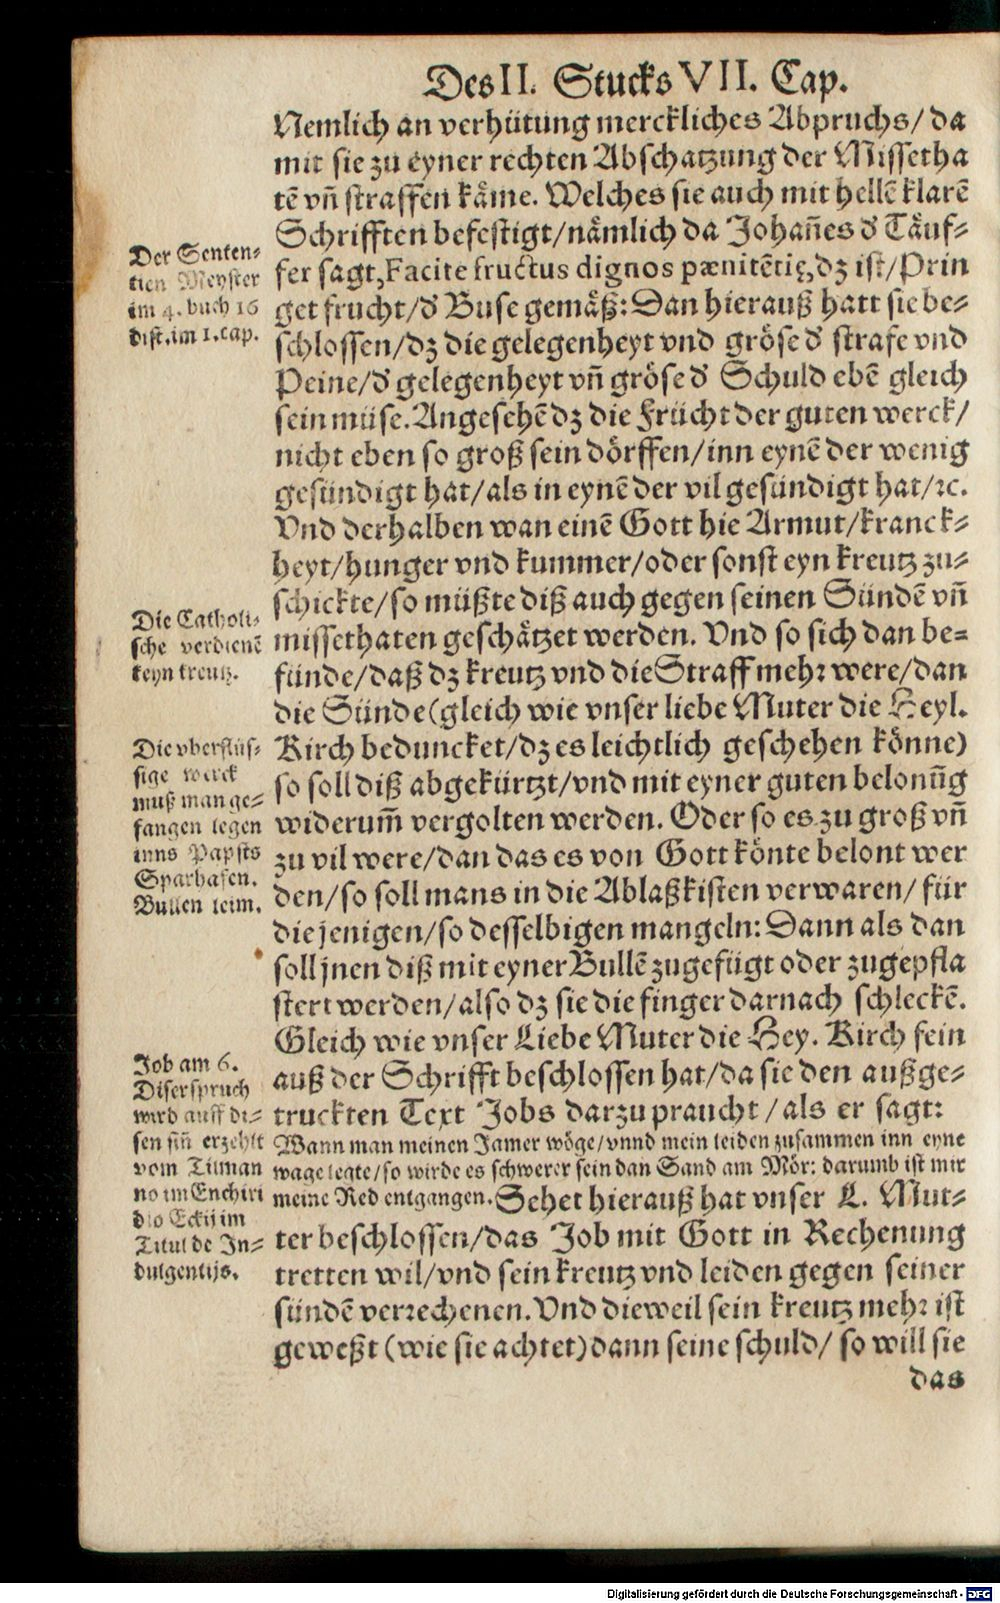 Des II. Stucks VII. Cap.
Nemlich an verhütung merckliches Abpruchs/ da
mit sie zu eyner rechten Abschatzung der Missetha
tē vñ straffen kåme. Welches sie auch mit hellē klarē
Schrifften befestigt/nåmlich da Johañes d' Tåuf-
fer sagt, Facite fructus dignos pænitētię, dz ist/Prin
get frucht/d' Buse gemåß: Dan hierauß hatt sie be-
schlossen/dz die gelegenheyt vnd gröse d' strafe vnd
Peine/d' gelegenheyt vñ gröse d' Schuld ebē gleich
sein müse. Angesehē dz die Frücht der guten werck/
nicht eben so groß sein dörffen/inn eynē der wenig
gesündigt hat/als in eynē der vil gesündigt hat/ꝛc.
Vnd derhalben wan einē Gott hie Armut/kranck-
heyt/hunger vnd kummer/oder sonst eyn kreutz zu-
schickte/so müßte diß auch gegen seinen Sündē vñ
missethaten geschåtzet werden. Vnd so sich dan be-
fünde/daß dz kreutz vnd die Straff mehr were/dan
die Sünde (gleich wie vnser liebe Muter die Heyl.
Kirch beduncket/dz es leichtlich geschehen könne)
so soll diß abgekürtzt/vnd mit eyner guten belonūg
widerum̄ vergolten werden. Oder so es zu groß vñ
zu vil were/dan das es von Gott könte belont wer
den/so soll mans in die Ablaßkisten verwaren/ für
die jenigen/so desselbigen mangeln: Dann als dan
soll jnen diß mit eyner Bullē zugefügt oder zugepfla
stert werden/also dz sie die finger darnach schleckē.
Gleich wie vnser Liebe Muter die Hey. Kirch fein
auß der Schrifft beschlossen hat/da sie den außge-
truckten Text Jobs darzu praucht/als er sagt:
Wann man meinen Jamer wöge/vnnd mein leiden zusammen inn eyne
wage legte/so wirde es schwerer sein dan Sand am Mör: darumb ist mir
meine Red entgangen. Sehet hierauß hat vnser L. Mut-
ter beschlossen/das Job mit Gott in Rechenung
tretten wil/vnd sein kreutz vnd leiden gegen seiner
sündē verrechenen. Vnd dieweil sein kreutz mehr ist
geweßt (wie sie achtet) dann seine schuld/ so will sie
das
Der Senten-
tien Meyster
im 4. buch 16
dist. im 1. cap.
Die Catholi-
sche verdienē
keyn kreutz.
Die vberflüs-
sige werck
muß man ge-
fangen legen
inns Papsts
Sparhafen.
Bullen leim.
Job am 6.
Diser spruch
wird auff di-
sen siñ erzehlt
vom Tilman
no im Enchiri
dio Eckij im
Titul de In-
dulgentijs.
Digitalisierung gefördert durch die Deutsche Forschungsgemeinschaft - DFG